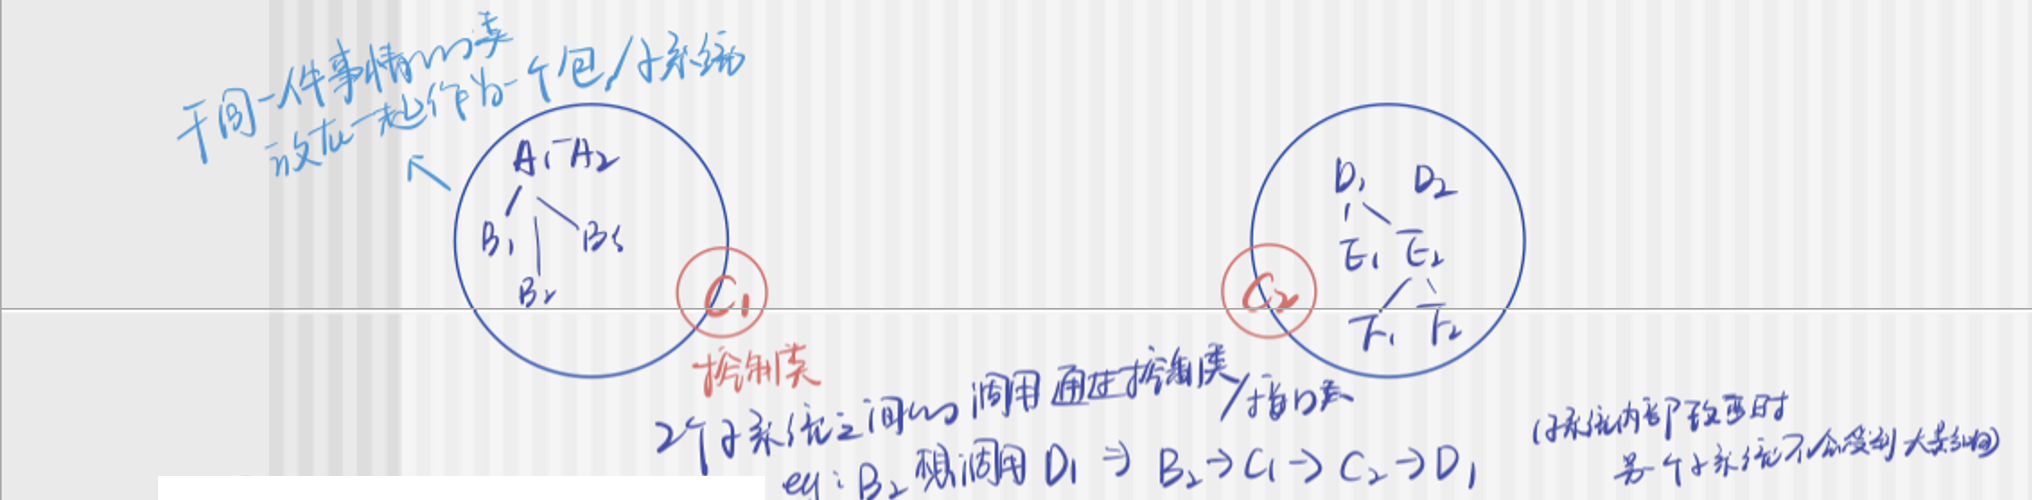 干同一件事情的类
放在一起作为一个包/子系统
A1 A2
B1 B3
B2
C1
控制类
D1 D2
E1 E2
F1 F2
C2
2个子系统之间的调用通过控制类/接口类
eg: B2想调用D1 ⇒ B2→C1→C2→D1
(子系统内部改变时
另一个子系统不会受到大影响)